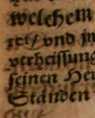 welchem
ret/ vnd in
verheissung
seinen Her
Ständen